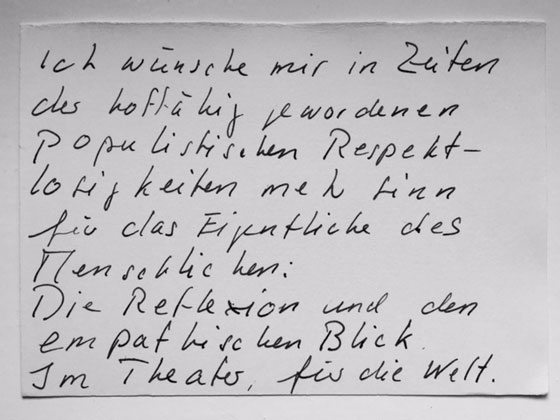 Ich wünsche mir in Zeiten
der hoffähig gewordenen
populistischen Respekt-
losigkeiten mehr Sinn
für das Eigentliche des
Menschlichen:
Die Reflexion und den
empathischen Blick.
Im Theater, für die Welt.